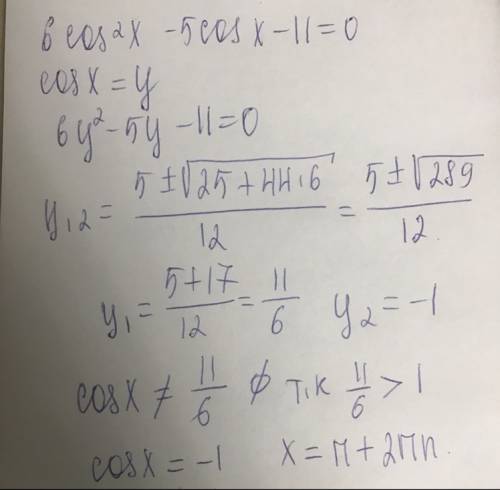 6 cos²x - 5 cos x - 11 = 0
cos x = y
6y² - 5y - 11 = 0
y₁,₂ = (5 ± √(25 + 44·6))/12 = (5 ± √289)/12
y₁ = (5 + 17)/12 = 11/6 y₂ = -1
cos x ≠ 11/6 ∅ т.к 11/6 > 1
cos x = -1 x = π + 2πn.